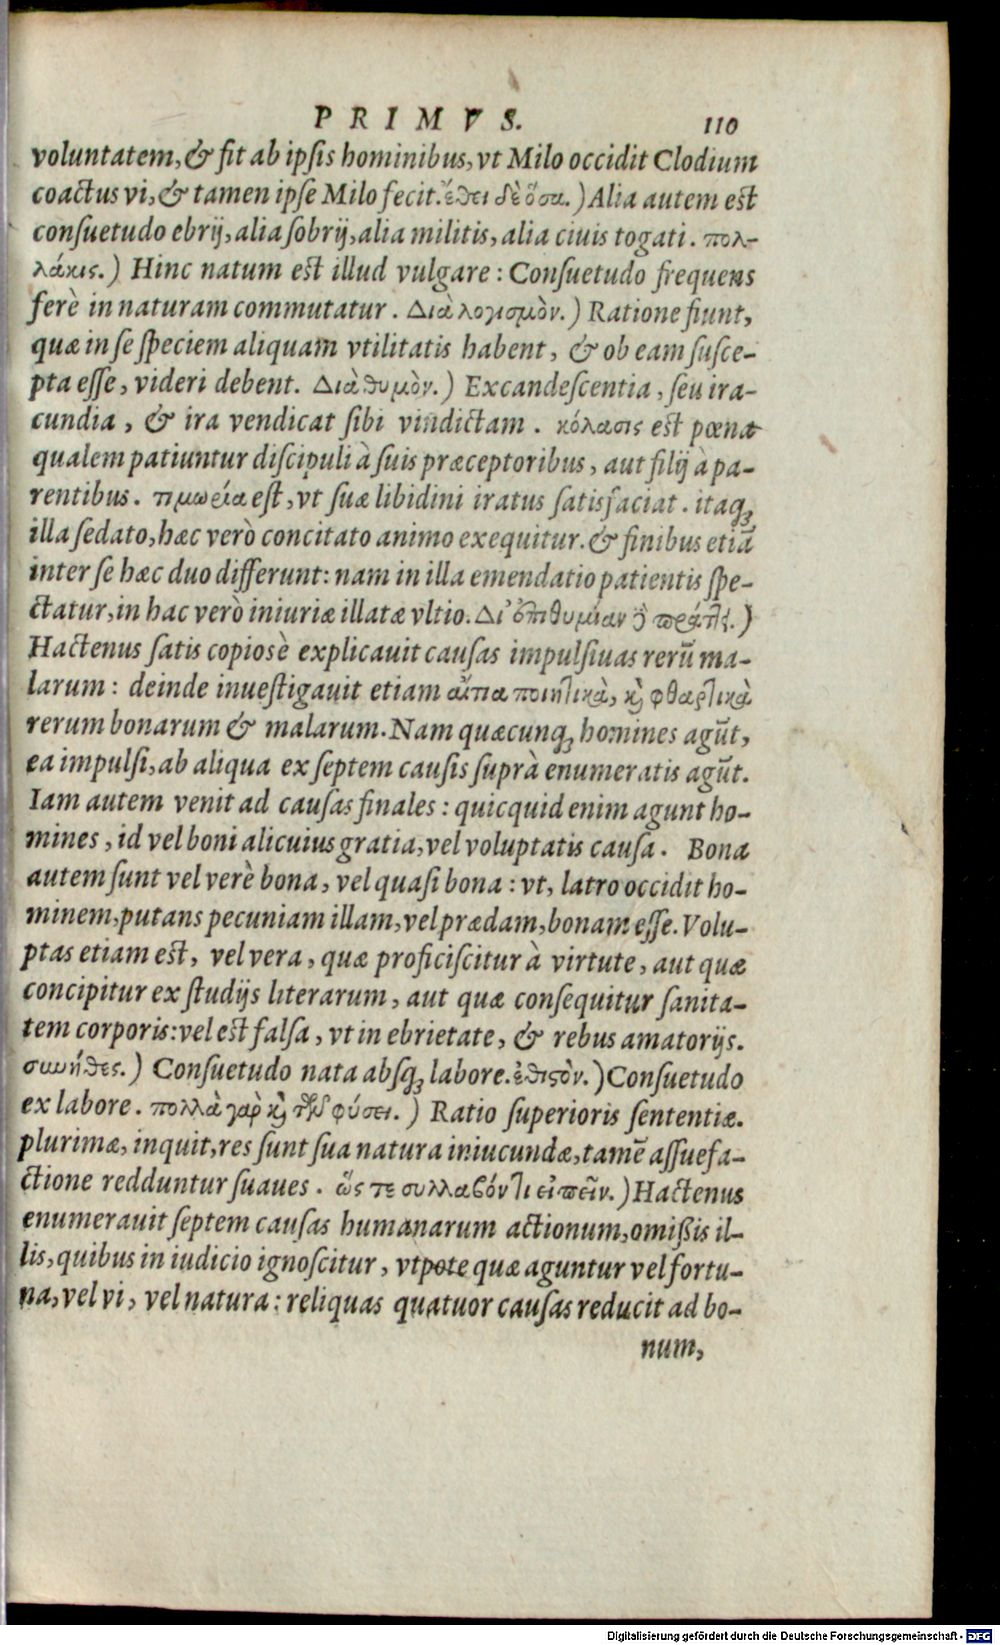 PRIMVS. 110
voluntatem, & fit ab ipſis hominibus, vt Milo occidit Clodium
coactus vi, & tamen ipſe Milo fecit. ἔθει δὲ ὅσα.) Alia autem est
conſuetudo ebrij, alia ſobrij, alia militis, alia ciuis togati. πολ-
λάκις.) Hinc natum est illud vulgare: Conſuetudo frequens
ferè in naturam commutatur. Διὰ λογισμὸν.) Ratione fiunt,
quæ in ſe ſpeciem aliquam vtilitatis habent, & ob eam ſuſce-
pta eſſe, videri debent. Διὰ θυμὸν.) Excandeſcentia, ſeu ira-
cundia, & ira vendicat ſibi vindictam. κόλασις est pœna
qualem patiuntur diſcipuli à ſuis præceptoribus, aut filij à pa-
rentibus. τιμωρία eſt, vt ſuæ libidini iratus ſatisfaciat. itaq;
illa ſedato, hæc verò concitato animo exequitur. & finibus etiã
inter ſe hæc duo differunt: nam in illa emendatio patientis ſpe-
ctatur, in hac verò iniuriæ illatæ vltio. Δι' ἐπιθυμίαν ὃ πράτ͂ε.)
Hactenus ſatis copiosè explicauit cauſas impulſiuas rerũ ma-
larum: deinde inueſtigauit etiam αἴτια ποιητικὰ, κ φθαρτικὰ
rerum bonarum & malarum. Nam quæcunq; homines agũt,
ea impulſi, ab aliqua ex ſeptem cauſis ſuprà enumeratis agũt.
Iam autem venit ad cauſas finales: quicquid enim agunt ho-
mines, id vel boni alicuius gratia, vel voluptatis cauſa. Bona
autem ſunt vel verè bona, vel quaſi bona: vt, latro occidit ho-
minem, putans pecuniam illam, vel prædam, bonam eſſe. Volu-
ptas etiam est, vel vera, quæ proficiſcitur à virtute, aut quæ
concipitur ex ſtudijs literarum, aut quæ conſequitur ſanita-
tem corporis: vel est falſa, vt in ebrietate, & rebus amatorijs.
σύνηθες.) Conſuetudo nata absq; labore. ἐθιστὸν.) Conſuetudo
ex labore. πολλὰ γὰρ κ τῶν φύσει.) Ratio ſuperioris ſententiæ.
plurimæ, inquit, res ſunt ſua natura iniucundæ, tamẽ aſſuefa-
ctione redduntur ſuaues. ὥς τε συλλαβόντι εἰπεῖν.) Hactenus
enumerauit ſeptem cauſas humanarum actionum, omißis il-
lis, quibus in iudicio ignoſcitur, vtpote quæ aguntur vel fortu-
na, vel vi, vel natura: reliquas quatuor cauſas reducit ad bo-
num,
Digitalisierung gefördert durch die Deutsche Forschungsgemeinschaft - DFG